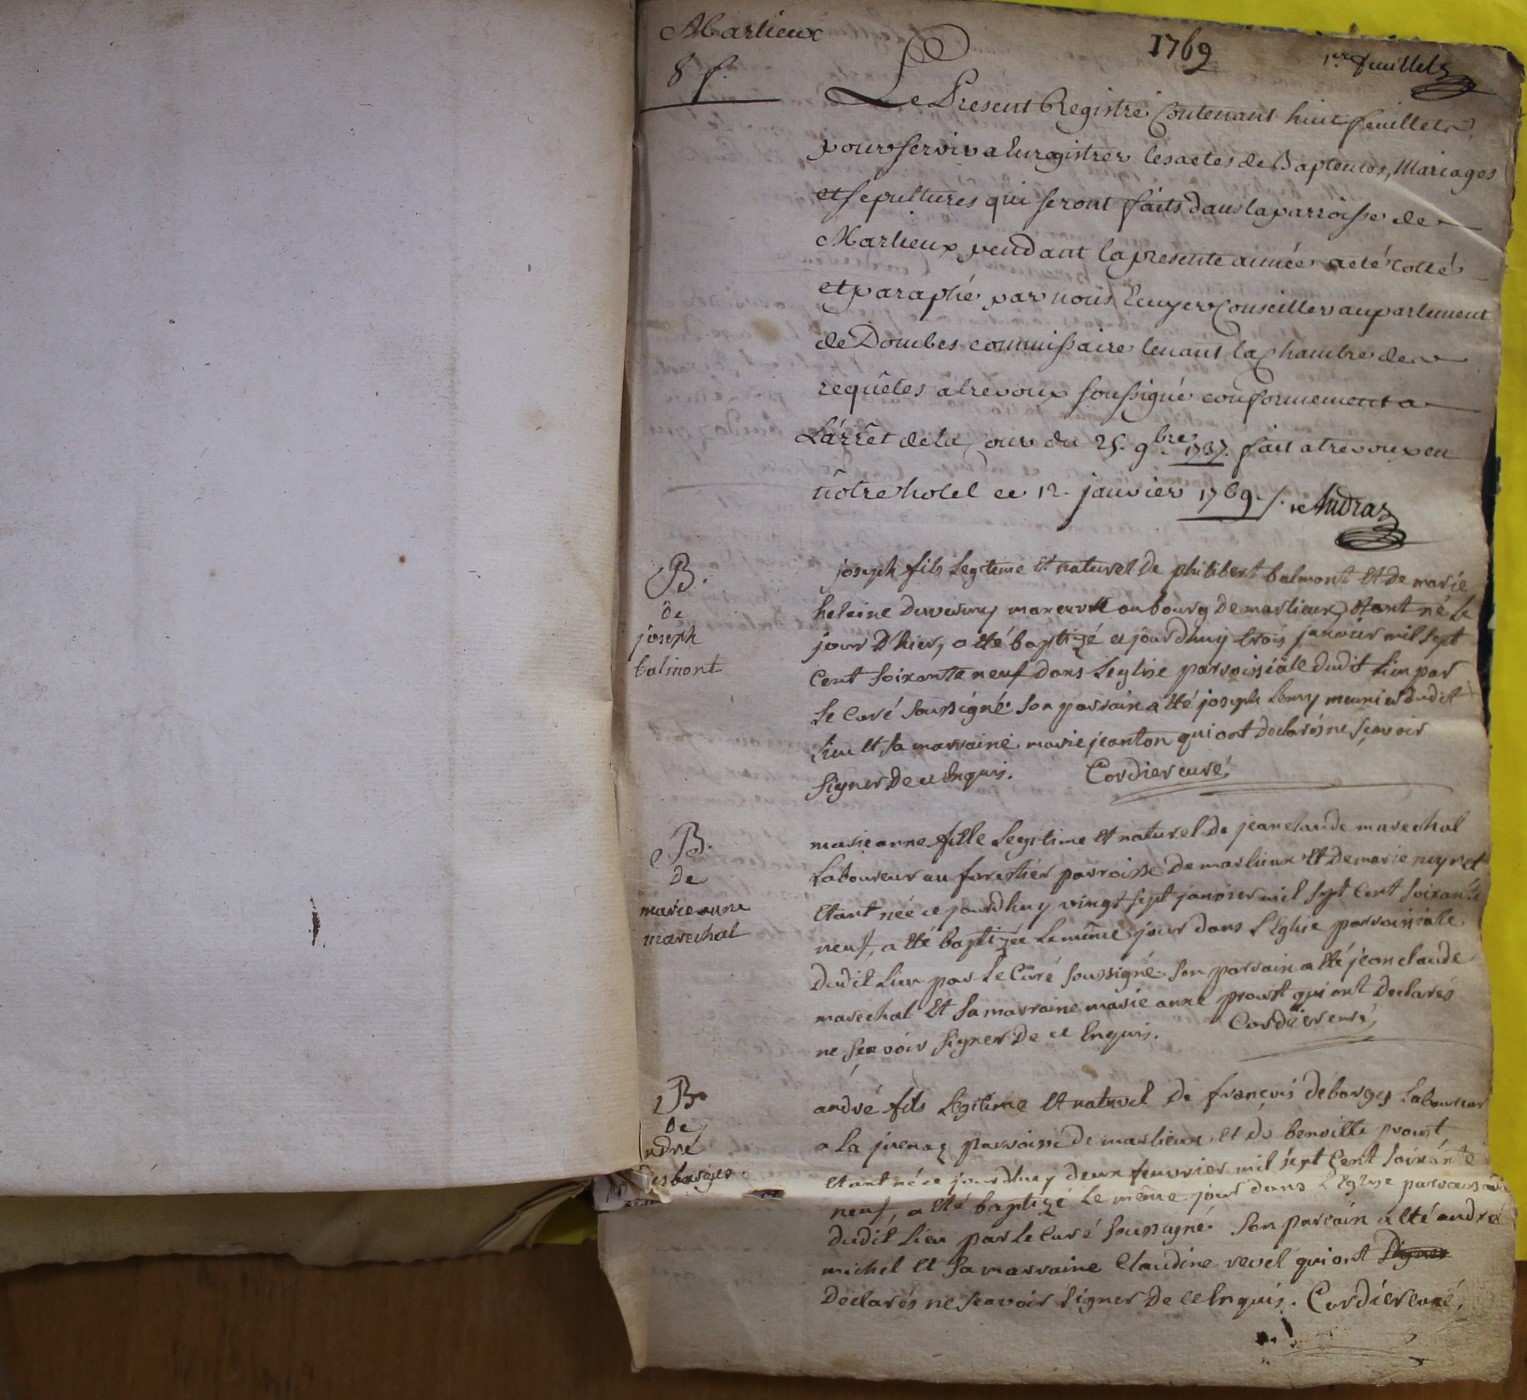 Marlieux
8 f.
1769
1er feuillet
Le Present Registre Contenant huit feuillets
pour servir a Enregistrer les actes de Baptemes, Mariages
et sepultures qui seront faits dans la parroisse de
Marlieux pendant la presente année a eté cotté
et paraphé par nous Ecuyer Conseiller au parlement
de Dombes commissaire tenant la Chambre de
requêtes a trevoux soussigné conformement a
L'arrêt de la Cour du 25. 9bre 1737. fait a trevoux en
nôtre hotel ce 12. janvier 1769 /.
B.
de
joseph
balmont
joseph fils Legitime et naturel de philibert balmont et de marie
heleine au bourg de marlieux, étant né le
jour d'hier, a eté baptizé ce jourdhuy trois janvier mil sept
cent soixante neuf dans Leglise parroissiale dudit Lieu par
le curé soussigné son parrain a eté joseph meunier dudit
Lieu et sa marraine marie jeanton qui ont declarés ne scavoir
signer de ce Enquis. Cordier curé
B.
de
marie anne
marechal
marie anne fille Legitime et naturel de jean claude marechal
Laboureur au forestier parroisse de marlieux et de marie
Etant née ce jourdhuy vingt sept janvier mil sept cent soixante
neuf, a eté baptizée le même jour dans L'Eglise parroissialle
dudit Lieu par Le Curé soussigné son parrain a eté jean claude
marechal et sa marraine marie anne proust qui ont declarés
ne scavoir signer de ce Enquis. Cordier curé
B.
de
andré
desborges
andré fils Legitime et naturel de françois déborges Laboureur
a La parroisse de marlieux et de benoitte proust
etant né ce jourdhuy deux feuvrier mil sept cent soixante
neuf, a eté baptizé Le même jour dans L'Eglise parroissialle
dudit Lieu par le curé soussigné. son parrain a eté andré
michel et sa marraine Claudine revel qui ont signer
declarés ne scavoir signer de ce Enquis. Cordier curé,